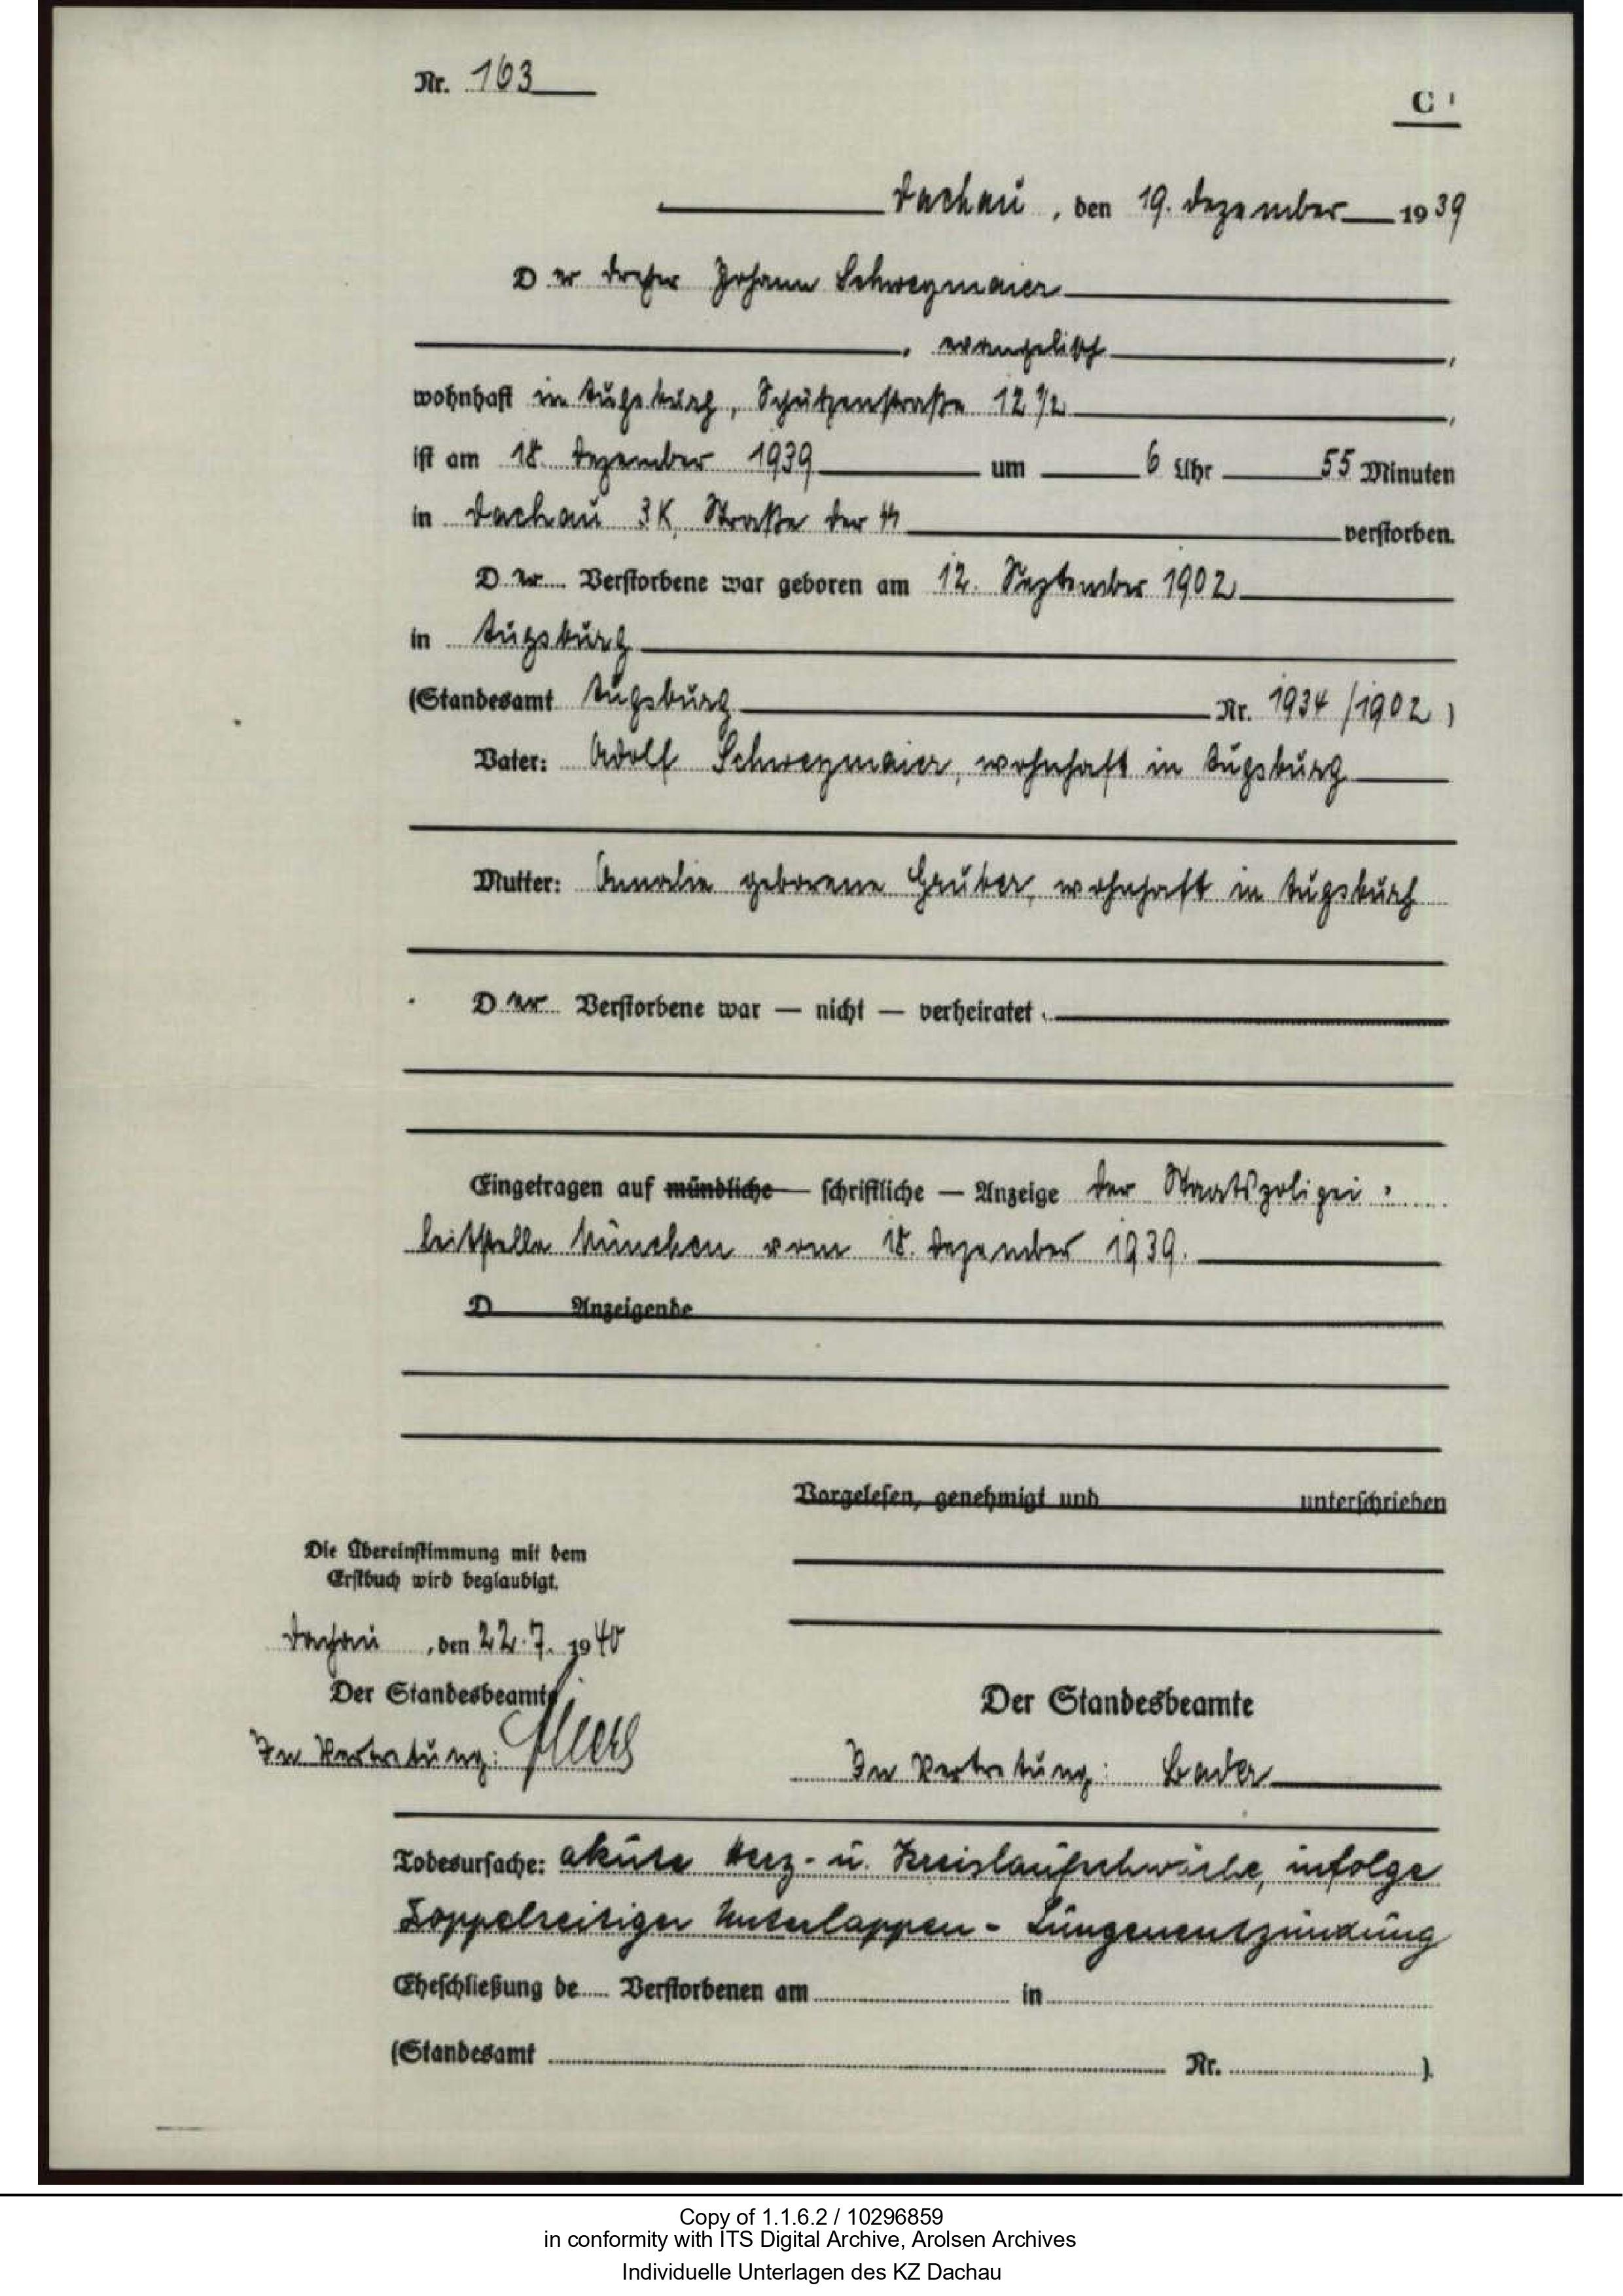 Nr. 163
C
Dachau, den 19. Dezember 1939
Der Dreher Johann Schweymaier
, evangelisch,
wohnhaft in Augsburg, Schützenstraße 12 1/2,
ist am 18. Dezember 1939 um 6 Uhr 55 Minuten
in Dachau 3K, Straße der SS verstorben.
Der Verstorbene war geboren am 12. September 1902
in Augsburg
(Standesamt Augsburg Nr. 1934/1902)
Vater: Adolf Schweymaier, wohnhaft in Augsburg
Mutter: geborene wohnhaft in Augsburg
Der Verstorbene war — nicht — verheiratet.
Eingetragen auf mündliche — schriftliche — Anzeige der Staatspolizei-
leitstelle München vom 18. Dezember 1939.
D Anzeigende
Vorgelesen, genehmigt und unterschrieben
Die Übereinstimmung mit dem
Erstbuch wird beglaubigt.
Dachau, den 22.7.1940
Der Standesbeamte
In Vertretung:
Der Standesbeamte
In Vertretung: Bader
Todesursache: akute Herz- u. Kreislaufschwäche, infolge
Doppelseitiger Unterlappen-Lungenentzündung
Eheschließung de Verstorbenen am in
(Standesamt Nr. )
Copy of 1.1.6.2 / 10296859
in conformity with ITS Digital Archive, Arolsen Archives
Individuelle Unterlagen des KZ Dachau